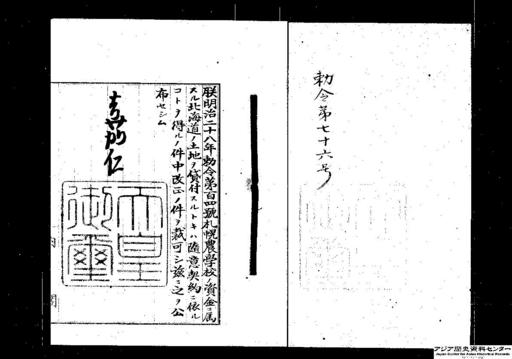 勅令第七十六号
朕明治二十八年勅令第百四號札幌農學校ノ資金ニ属
スル北海道ノ土地ヲ貸付スルトキハ随意契約ニ依ル
コトヲ得ルノ件中改正ノ件ヲ裁可シ茲ニ之ヲ公
布セシム
嘉仁
天皇御璽
内閣
アジア歴史資料センター
Japan Center for Asian Historical Records